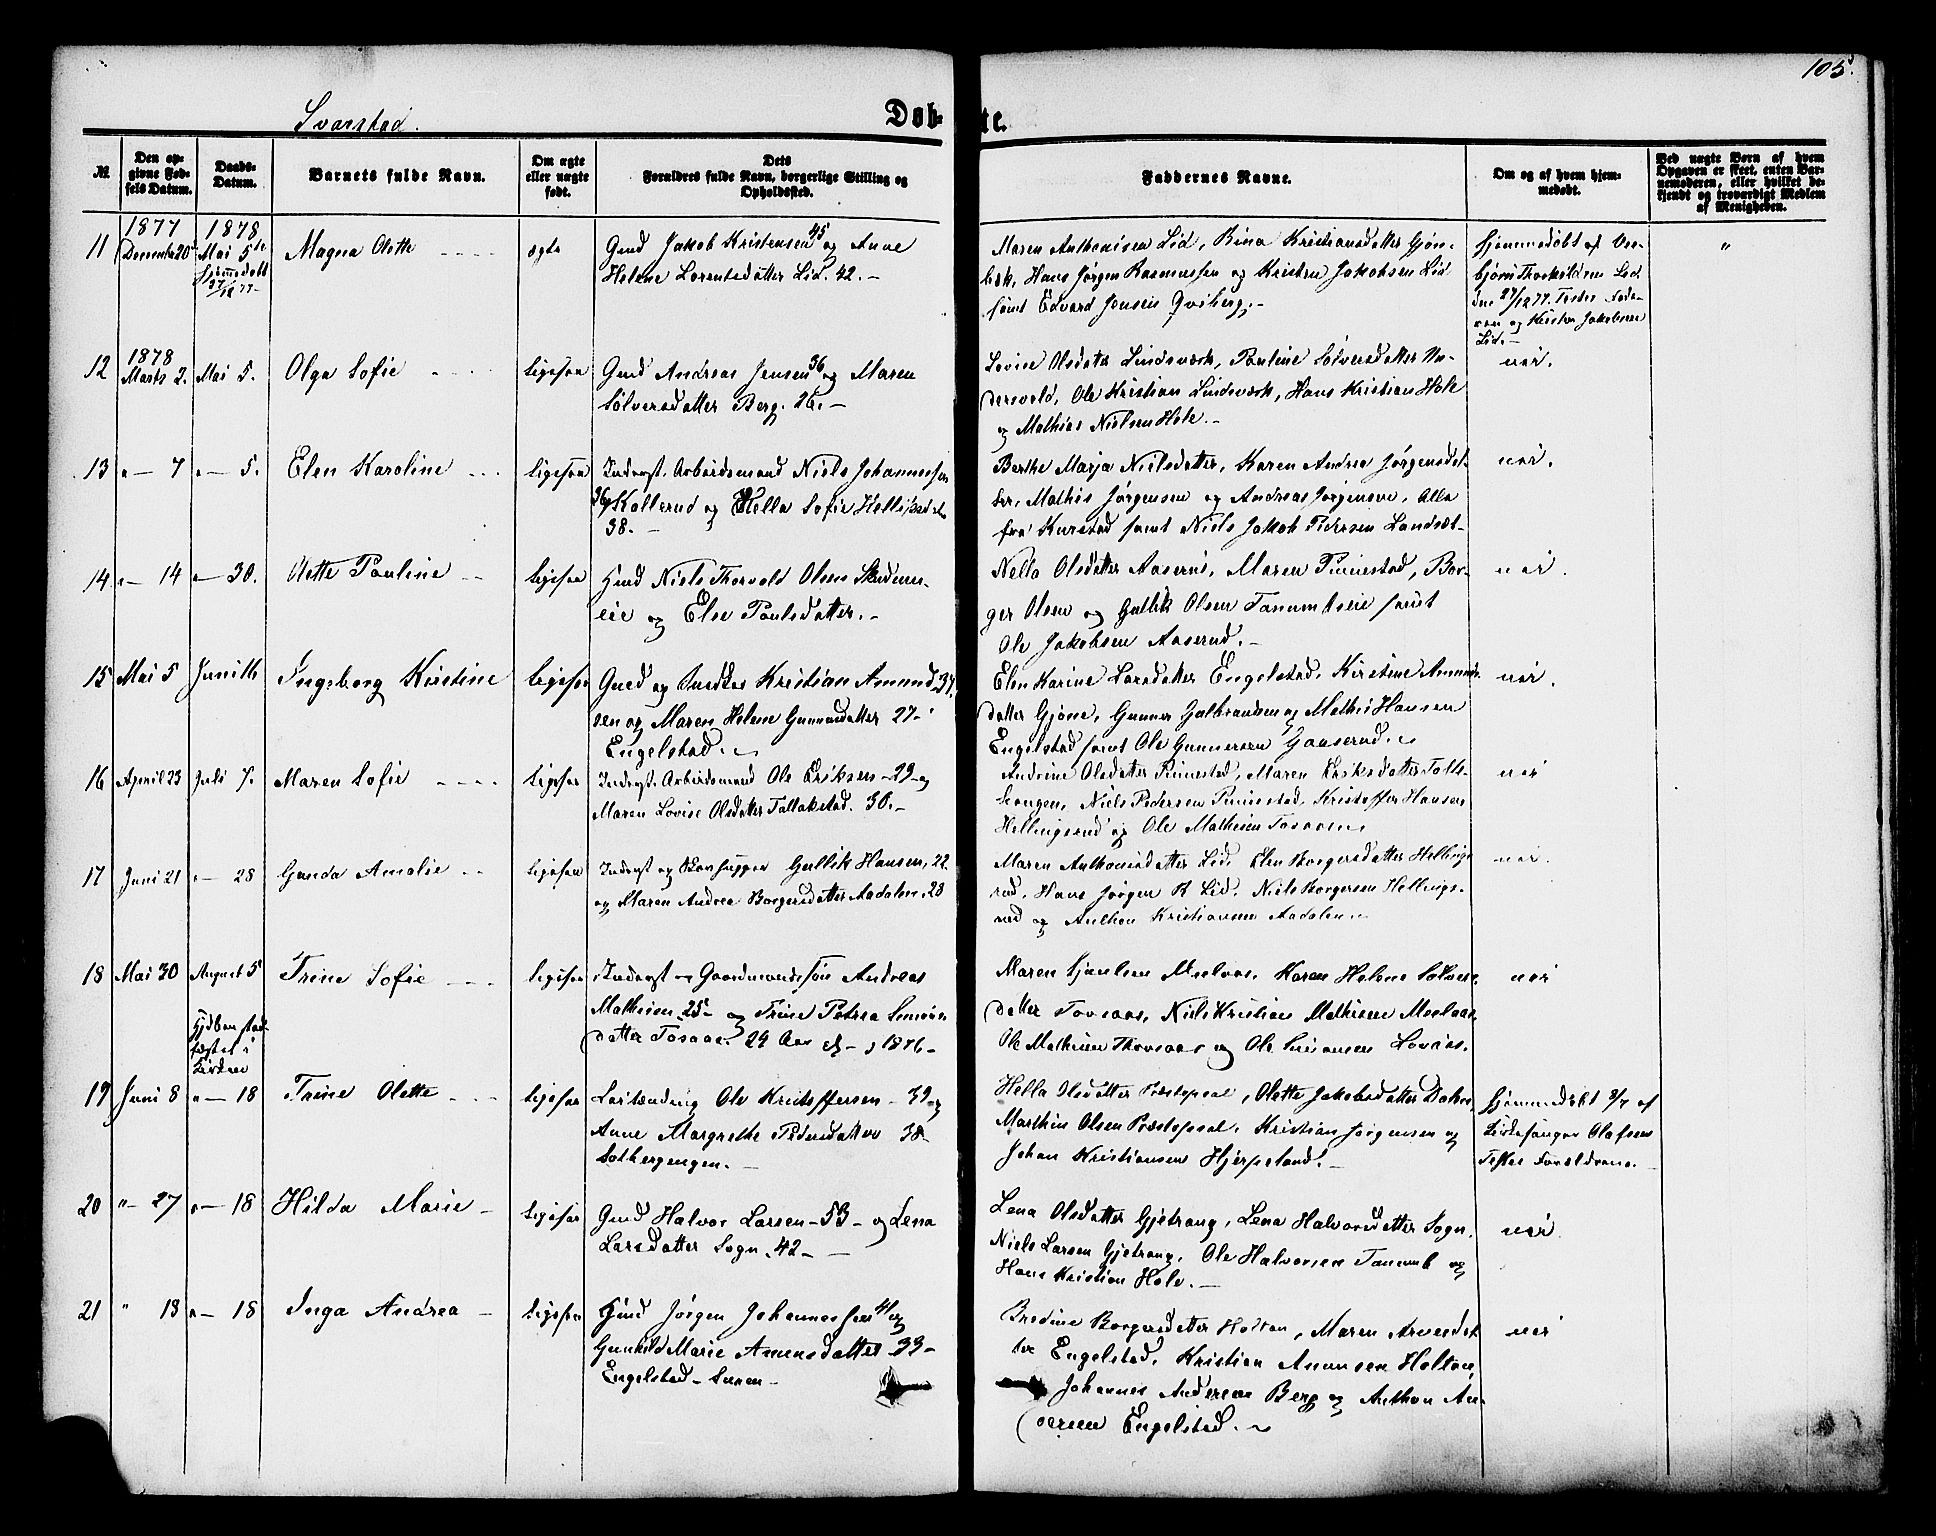 105.
Svarstad.
Døb-
te.
№
Den op-
givne Fød-
sels Datum.
Daabs-
Datum.
Barnets fulde Navn.
Om ægte
eller uægte
født.
Dets
Forældres fulde Navn, borgerlige Stilling og
Opholdssted.
Faddernes Navne.
Om og af hvem hjem-
medøbt.
Ved uægte Børn af hvem
Opgaven er skeet, enten Bar-
nemoderen, eller hvilket be-
kjendt og troværdigt Medlem
af Menigheden.
11
1877
December 20
1878
Mai 5te
Hjemmedøbt
27/12 77
Magna Olette
ægte
Gmd Jakob Kristensen 45 og Anne
Helene Lorentsdatter Lid. 42.
Maren Anthonisen Lid, Bina Kristiansdatter Gjøn-
bæk, Hans Jørgen Rasmussen og Kristen Jakobsen Lid
samt Edvard Jensen Qviberg.
Hjemmedøbt af
Lid
den 27/12 77. Testes
og Kristen Jakobsen
Lid.
"
12
1878
Marts 2.
Mai 5.
Olga Sofie
ligesaa
Gmd Andreas Jensen 36 og Maren
Sølversdatter Berg. 26.
Lovise Olsdatter Lindsværk, Pauline Sølversdatter Un-
dersvold, Ole Kristian Lindsværk, Hans Kristian Hole
og Mathias Nielsen Hole.
nei.
13
" 7
" 5.
Elen Karoline
ligesaa
Inderst. Arbeidsmand Niels Johannessen
36 Kollerud og Hella Sofie Hellisdatter
38.
Berthe Marja Nielsdatter, Karen Andrea Jørgensdat-
ter, Mathis Jørgensen og Andreas Jørgensen, Alle
fra samt Niels Jakob Pedersen Landsæt
nei.
14
" 14
" 30.
Olette Pauline
ligesaa
Hmd Niels Thorvald Olsen
eie og Else Paulsdatter.
Nella Olsdatter Aaserud, Maren Pinnestad, Bor-
ger Olsen og Gullik Olsen samt
Ole Jakobsen Aaserud.
nei.
15
Mai 5
Juni 16
Ingeborg Kristine
ligesaa
Gmd og Snedker Kristian Amund 37
sen og Maren Helene Gunnersdatter 27
Engelstad.
Elen Karine Larsdatter Engelstad, Kirstine Amunds-
datter Gjone, Gunner Gulbrandsen og Mathis Hansen
Engelstad samt Ole Gunnersen Gaaserud.
nei.
16
April 23
Juli 7.
Maren Sofie
ligesaa
Inderst. Arbeidsmand Ole Eriksen 29 og
Maren Lovise Olsdatter Follakstad. 30.
Andrine Olsdatter Pinnestad, Maren Eriksdatter
Niels Pedersen Pinnestad, Kristoffer Hansen
Hellingsrud og Ole Mathisen
nei
17
Juni 21
" 28
Gunda Amalie
ligesaa
Inderst og Gullik Hansen, 22
og Maren Andrea Borgersdatter Aadalen. 28
Maren Anthonisdatter Lid, Elen Borgersdatter Hellings-
rud, Hans Jørgen R Lid, Niels Borgersen Hellings-
rud og Anthon Kristiansen Aadalen.
nei.
18
Mai 30
August 5
Trine Sofie
ligesaa
Inderst Gaardmandssøn Andreas
Mathisen 25 og Trine Petrea Simons-
datter Tosaas. 24 Aar 1876
Maren Kjønlsen Moelaas, Karen Helene Sølvers-
datter Tovsaas, Niels Kristian Mathisen Moelaas,
Ole Mathisen Thovsaas og Ole Simonsen
nei
stad-
fæstet i
Kirken
19
Juni 8
" 18
Trine Olette
ligesaa
Ole Kristoffersen 39 og
Anne Margrethe Pedersdatter 38
Solbergengen.
Hella Olsdatter Præstepsal, Olette Jakobsdatter
Marthin Olsen Præstepsal, Kristian Jørgensen og
Johan Kristiansen Hjerpeland.
Hjemmedøbt 8/7 af
Kirkesanger Olafsen
Testes Forældrene.
20
" 27
" 18
Hilda Marie
ligesaa
Gmd Halvor Larsen 53 og Lena
Larsdatter Sogn 42
Lena Olsdatter Gjetrang, Lena Halvorsdatter Sogn,
Niels Larsen Gjetrang, Ole Halvorsen og
Hans Kristian Hole.
nei.
21
" 18
" 18
Inga Andrea
ligesaa
Hmd Jørgen Johannessen 41 og
Gunhild Marie Amunsdatter 33
Engelstad
Bredine Borgersdatter Holtan, Maren Arvesdat-
ter Engelstad, Kristian Amunsen Holtan,
Johannes Andersen Berg og Anthon An-
dersen Engelstad.
nei